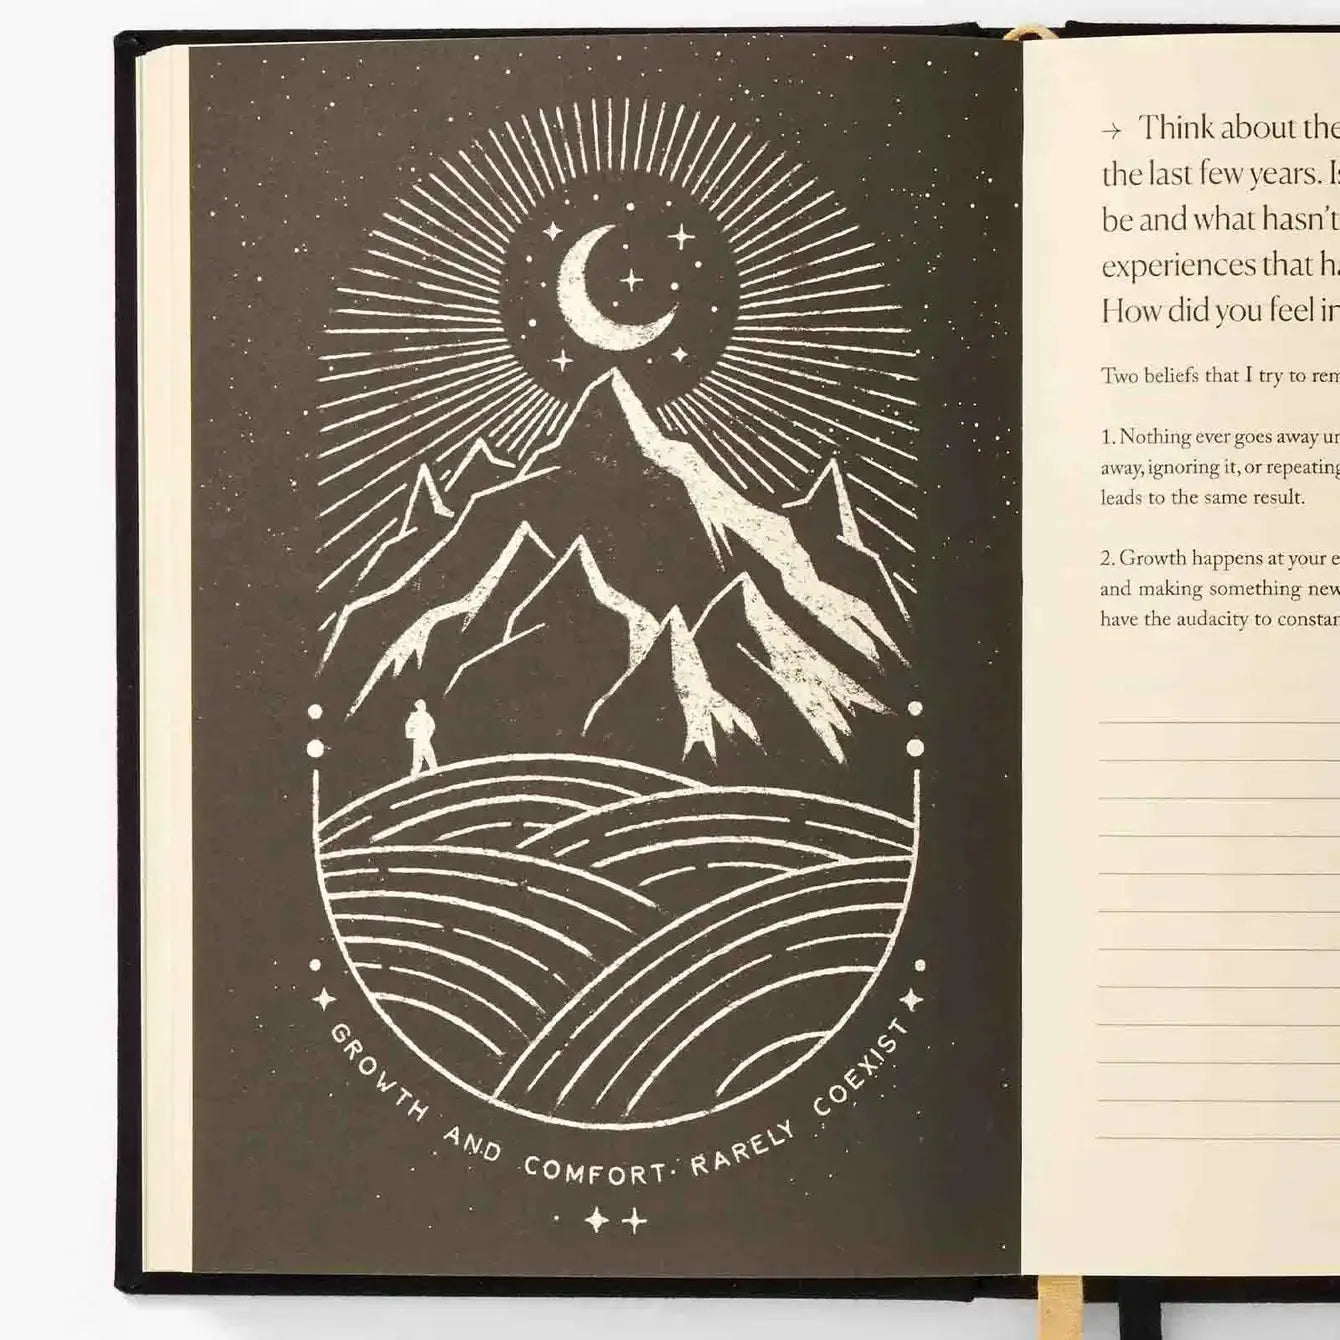 GROWTH AND COMFORT RARELY COEXIST
→ Think about the
the last few years.
be and what hasn't
experiences that
How did you feel
Two beliefs that I try to
1. Nothing ever goes away
away, ignoring it, or repeating
leads to the same result.
2. Growth happens at your
and making something new
have the audacity to